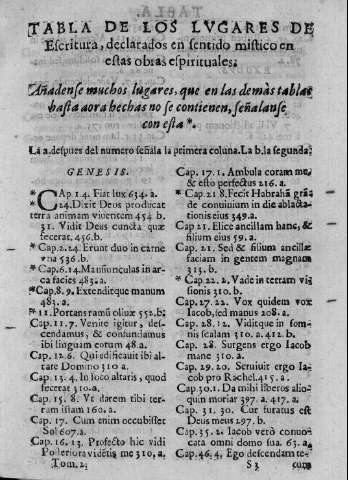 TABLA DE LOS LVGARES DE
Escritura, declarados en sentido mistico en
estas obras espirituales.
Añadense muchos lugares, que en las demàs tablas
hasta aora hechas no se contienen, señalanse
con esta *.
La a. despues del numero señala la primera coluna. La b. la segunda.
GENESIS.
*CAp. 14. Fiat lux 634. a.
24. Dixit Deus producat
terra animam viventem 454 b.
31. Vidit Deus cuncta quæ
fecerat, 456. b.
*Cap. 2. 24. Erunt duo in carne
vna 536. b.
*Cap. 6. 14. Mansiunculas in ar
ca facies 483. a.
*Cap. 8. 9. Extenditque manum
483. a.
* 11. Portans ramũ olivæ 552. b.
Cap. 11. 7. Venite igitur, des-
cendamus, & confundamus
ibi linguam eorum 48. a.
Cap. 12. 6. Qui ædificavit ibi al-
tare Domino 310 a.
Cap. 13. 4. In loco altaris, quod
fecerat 310. a.
Cap. 15. 8. Vt darem tibi ter-
ram istam 160. a.
Cap. 17. Cum enim occubisset
Sol 607. a.
Cap. 16. 13. Profecto hic vidi
Posteriora vidẽtis me 310, a.
Tom. 2.
Cap. 17. 1. Ambula coram me,
& esto perfectus 216. a.
*Cap. 21. 8. Fecit Habrahã grã
de convivium in die ablacta-
tionis eius 349. a.
Cap 21. Eiice ancillam hanc, &
filium eius 59. a.
Cap. 21. Sed & filium ancillæ
faciam in gentem magnam
313. b.
*Cap. 22. 2. Vade in terram vi-
sionis 310. b.
Cap. 27. 22. Vox quidem vox
Iacob, sed manus 208. a.
Cap. 28. 12. Viditque in som-
nis scalam 310. a. 412. b.
Cap. 28. Surgens ergo Iacob
mane 310. a.
Cap. 29. 20. Serviuit ergo Ia-
cob pro Rachel. 415. a.
Cap. 30. 1. Da mihi liberos alio-
quin moriar 397. a. 417. a.
Cap. 31. 30. Cur furatus est
Deus meus 297. b.
Cap. 35. 2. Iacob verò convo-
cata omni domo sua. 63. a.
Cap. 46. 4. Ego descendam te-
S 3 cum